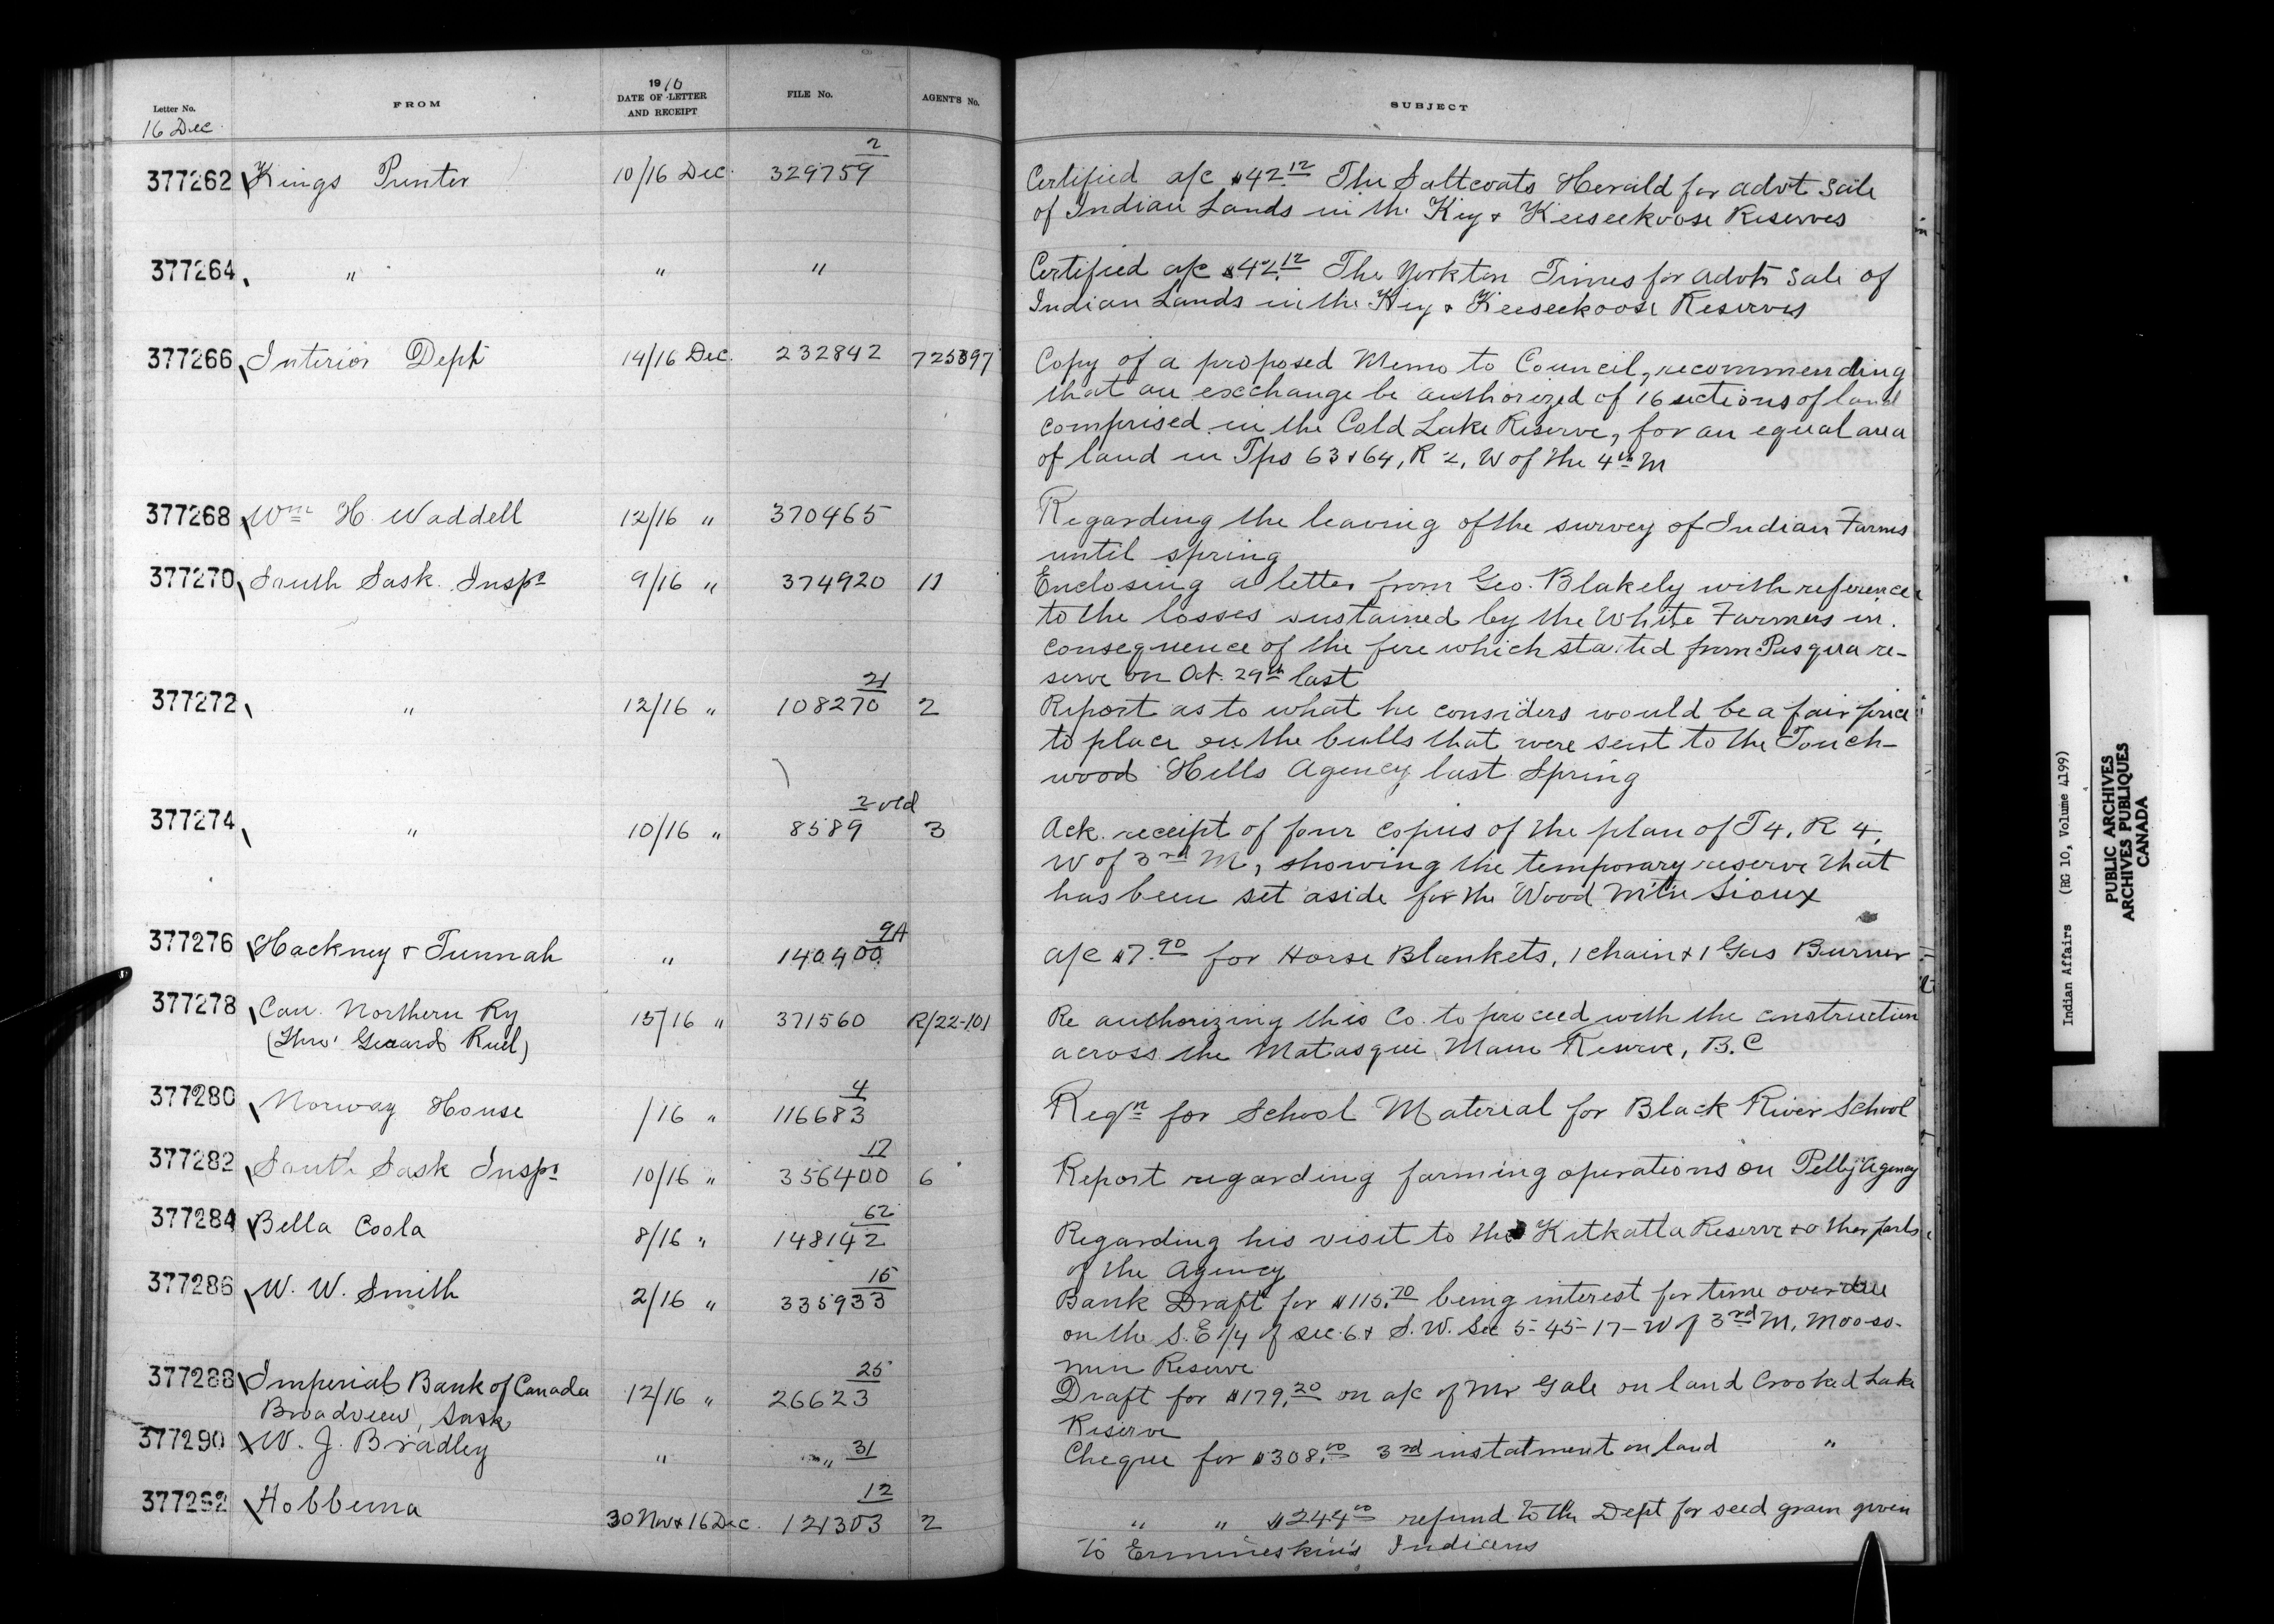 Letter No. FROM 1910 DATE OF LETTER AND RECEIPT FILE No. AGENT'S No. SUBJECT
16 Dec
377262 Kings Printer 10/16 Dec. 329759 2 Certified a/c $42.12 The Saltcoats Herald for advt sale
of Indian Lands in the Key & Keeseekoose Reserves
377264 " " " Certified a/c $42.12 The Yorkton Times for advt sale of
Indian Lands in the Key & Keeseekoose Reserves
377266 Interior Dept 14/16 Dec. 232842 725397 Copy of a proposed Memo to Council, recommending
that an exchange be authorized of 16 sections of land
comprised in the Cold Lake Reserve, for an equal area
of land in Tps 63 & 64, R 2, W of the 4th M
377268 Wm H. Waddell 12/16 " 370465 Regarding the leaving of the survey of Indian Farms
until spring
377270 South Sask. Inspr 9/16 " 374920 11 Enclosing a letter from Geo. Blakely with reference
to the losses sustained by the White Farmers in
consequence of the fire which started from Pasqua re-
serve on Oct. 29th last
377272 " 12/16 " 108270 21 2 Report as to what he considers would be a fair price
to place on the bulls that were sent to the Touch-
wood Hills Agency last Spring
377274 " 10/16 " 8589 2 old 3 Ack. receipt of four copies of the plan of T4, R 4,
W of 3rd M, showing the temporary reserve that
has been set aside for the Wood Mtn Sioux
377276 Hackney & Tunnah " 140400 9A a/c $7.90 for Horse Blankets, 1 chain & 1 Gas Burner
377278 Can. Northern Ry 15/16 " 371560 R/22-101 Re authorizing this Co. to proceed with the construction
(Thro' Gerard Ruel) across the Matasqui Main Reserve, B.C
377280 Norway House /16 " 116683 4 Reqn for School Material for Black River School
377282 South Sask Inspr 10/16 " 356400 17 6 Report regarding farming operations on Pelly Agency
377284 Bella Coola 8/16 " 148142 62 Regarding his visit to the Kitkatla Reserve & other parts
of the Agency
377286 W. W. Smith 2/16 " 335933 15 Bank Draft for $115.70 being interest for time overdue
on the S.E 1/4 of sec. 6 & S.W. Sec 5-45-17-W of 3rd M, Mooso-
min Reserve
377288 Imperial Bank of Canada 12/16 " 26623 25 Draft for $179.20 on a/c of Mr Gale on land Crooked Lake
Broadview, Sask Reserve
377290 W. J. Bradley " " 31 Cheque for $308.00 3rd instatment on land "
377292 Hobbema 30 Nov & 16 Dec. 121303 12 2 " " $244.00 refund to the Dept for seed grain given
to Ermineskin's Indians
Indian Affairs (RG 10, Volume 4199)
PUBLIC ARCHIVES
ARCHIVES PUBLIQUES
CANADA